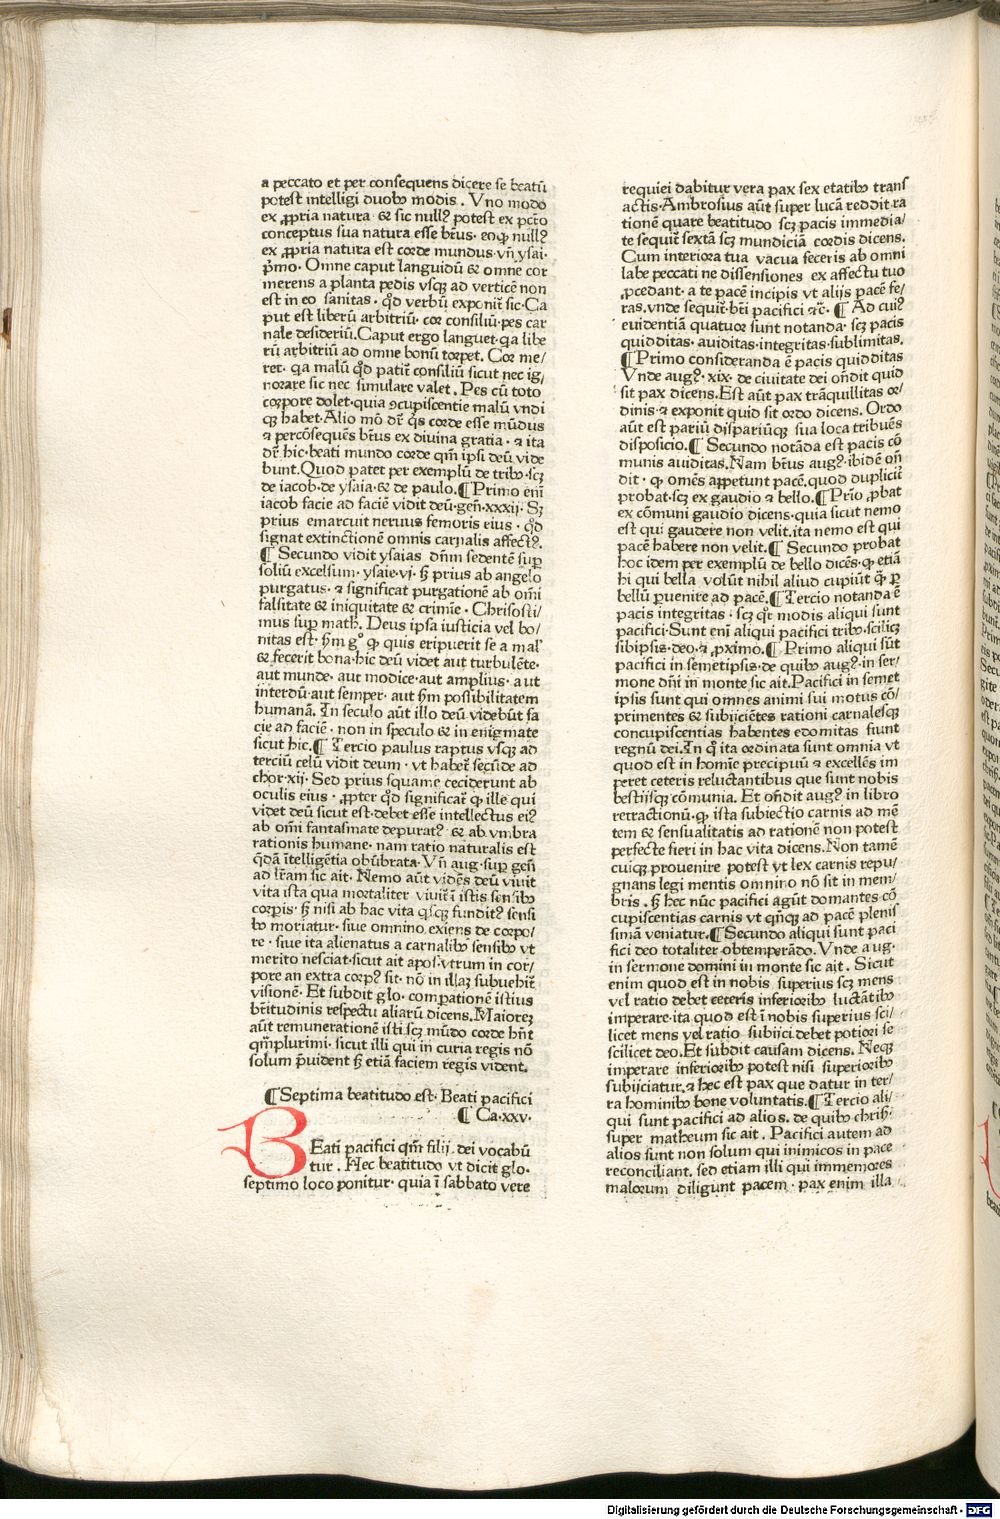 a peccato et per consequens dicere se beatū
potest intelligi duobꝰ modis . Vno modo
ex ꝓpria natura · & sic nullꝰ potest ex pctō
conceptus sua natura esse btūs · eo qꝫ nullꝰ
ex ꝓpria natura est corde mundus · vñ ysai ·
pͥmo · Omne caput languidū & omne cor
merens a planta pedis vsqꝫ ad verticē non
est in eo sanitas · qd̄ verbū exponit̄ sic · Ca
put est liberū arbitriū · cor consiliū · pes car
nale desideriū. Caput ergo languet · qa libe
rū arbitriū ad omne bonū torpet. Cor me/
ret · qa malū qd̄ patit̄ consiliū sicut nec ig/
norare sic nec simulare valet . Pes cū toto
corpore dolet · quia ꝯcupiscentie malū vndi
qꝫ habet · Alio mō dr̄ qͥs corde esse mūdus
⁊ per cōsequēs btūs ex diuina gratia · ⁊ ita
dr̄ hic · beati mundo corde qm̄ ipsi deū vide
bunt. Quod patet per exemplū de tribꝰ · scꝫ
de iacob · de ysaia · & de paulo. ¶ Primo eni
iacob facie ad faciē vidit deū · gen̄ · xxxij · Sꝫ
prius emarcuit neruus femoris eius · qd̄
signat extinctionē omnis carnalis affectꝰ.
¶ Secundo vidit ysaias dn̄m sedentē sup̄
soliū excelsum · ysaie · vj · sꝫ prius ab angelo
purgatus · ⁊ significat purgationē ab om̄i
falsitate & iniquitate & crimīe · Chrisosti/
mus sup̄ math. Deus ipsa iusticia vel bo/
nitas est · sm̄ gͦ qꝫ quis eripuerit se a mal'
& fecerit bona · hic deū videt aut turbulēte ·
aut munde · aut modice · aut amplius · aut
interdū · aut semper · aut sm̄ possibilitatem
humanā. In seculo aūt illo deū videbūt fa
cie ad faciē · non in speculo & in enigmate
sicut hic. ¶ Tercio paulus raptus vsqꝫ ad
terciū celū vidit deum · vt habet̄ secūde ad
chor · xij · Sed prius squame ceciderunt ab
oculis eius · ꝓpter qd̄ significat̄ qꝫ ille qui
videt deū sicut est · debet esse intellectus eiꝰ
ab om̄i fantasmate depuratꝰ & ab vmbra
rationis humane · nam ratio naturalis est
qdā ītelligētia obūbrata · Vn̄ aug · sup̄ gen̄
ad lr̄am sic ait · Nemo aūt vidēs deū viuit
vita ista qua mortaliter viuit̄ ī istis sensibꝰ
corpis · sꝫ nisi ab hac vita qͥsqꝫ fundit̄ sensi
bꝰ moriatur · siue omnino exiens de corpo/
re · siue ita alienatus a carnalibꝰ sensibꝰ vt
merito nesciat · sicut ait apos̄ · vtrum in cor/
pore an extra corpꝰ sit · nō in illaꝫ subuehit̄
visionē · Et subdit glo · comp̄ationē istius
bt̄itudinis respectu aliarū dicens. Maioreꝫ
aūt remunerationē isti scꝫ mūdo corde hn̄t
qm̄plurimi · sicut illi qui in curia regis nō
solum p̄uident sꝫ etiā faciem regis vident.
¶ Septima beatitudo est · Beati pacifici
¶ Ca · xxv ·
BEati pacifici qm̄ filij dei vocabū
tur . Hec beatitudo vt dicit glo ·
septimo loco ponitur · quia ī sabbato vere
requiei dabitur vera pax sex etatibꝰ trans
actis · Ambrosius aūt super lucā reddit ra
tionē quare beatitudo scꝫ pacis immedia/
te sequit̄ sextā scꝫ mundiciā cordis dicens.
Cum interiora tua vacua feceris ab omni
labe peccati ne dissensiones ex affectu tuo
ꝓcedant · a te pacē incipis vt alijs pacē fe/
ras. vnde sequit̄ · bt̄i pacifici ⁊c̄ · ¶ Ad cuiꝰ
euidentiā quatuor sunt notanda · scꝫ pacis
quidditas · auiditas · integritas · sublimitas.
¶ Primo consideranda ē pacis quidditas
Vnde augꝰ · xix · de ciuitate dei on̄dit quid
sit pax dicens. Est aūt pax trāquillitas or/
dinis · ⁊ exponit quid sit ordo dicens. Ordo
aūt est pariū dispariūqꝫ sua loca tribuēs
disposicio. ¶ Secundo notāda est pacis cō
munis auiditas. Nam btūs augꝰ · ibidē on̄
dit · qꝫ omēs appetunt pacē. quod duplicit̄
probat · scꝫ ex gaudio ⁊ bello. ¶ Prīo ꝓbat
ex cōmuni gaudio dicens · quia sicut nemo
est qui gaudere non velit. ita nemo est qui
pacē habere non velit. ¶ Secundo probat
hoc idem per exemplū de bello dicēs · qꝫ etiā
hi qui bella volūt nihil aliud cupiūt qͣꝫ ꝑ
bellū ꝑuenire ad pacē. ¶ Tercio notanda ē
pacis integritas · scꝫ qͬ modis aliqui sunt
pacifici · Sunt eni aliqui pacifici tribꝰ · scilicꝫ
sibipsis · deo · ⁊ ꝓximo. ¶ Primo aliqui sūt
pacifici in semetipsis · de quibꝰ augꝰ · in ser/
mone dn̄i in monte sic ait. Pacifici in semet
ipsis sunt qui omnes animi sui motus cō/
primentes & subijciētes rationi carnalesqꝫ
concupiscentias habentes edomitas fiunt
regnū dei. In qͦ ita ordinata sunt omnia vt
quod est in homīe precipuū & excellēs im
peret ceteris reluctantibus que sunt nobis
bestiisqꝫ cōmunia. Et on̄dit augꝰ in libro
retractionū · qꝫ ista subiectio carnis ad mē
tem & sensualitatis ad rationē non potest
perfecte fieri in hac vita dicens. Non tamē
cuiqꝫ prouenire potest vt lex carnis repu/
gnans legi mentis omnino nō sit in mem/
bris · sꝫ hec nūc pacifici agūt domantes cō
cupiscentias carnis vt qn̄qꝫ ad pacē plenis
simā veniatur. ¶ Secundo aliqui sunt paci
fici deo totaliter obtemperādo. Vnde aug ·
in sermone domini in monte sic ait . Sicut
enim quod est in nobis superius scꝫ mens
vel ratio debet ceteris inferioribꝰ luctātibꝰ
imperare · ita quod est ī nobis superius sci/
licet mens vel ratio subijci debet potiori se
scilicet deo. Et subdit causam dicens. Neqꝫ
imperare inferioribꝰ potest nisi superioribꝰ
subijciatur. ⁊ hec est pax que datur in ter/
ra hominibꝰ bone voluntatis. ¶ Tercio ali/
qui sunt pacifici ad alios. de quibꝰ chrisꝰ ·
super matheum sic ait . Pacifici autem ad
alios sunt non solum qui inimicos in pace
reconciliant. sed etiam illi qui immemores
malorum diligunt pacem · pax enim illa
Digitalisierung gefördert durch die Deutsche Forschungsgemeinschaft - DFG